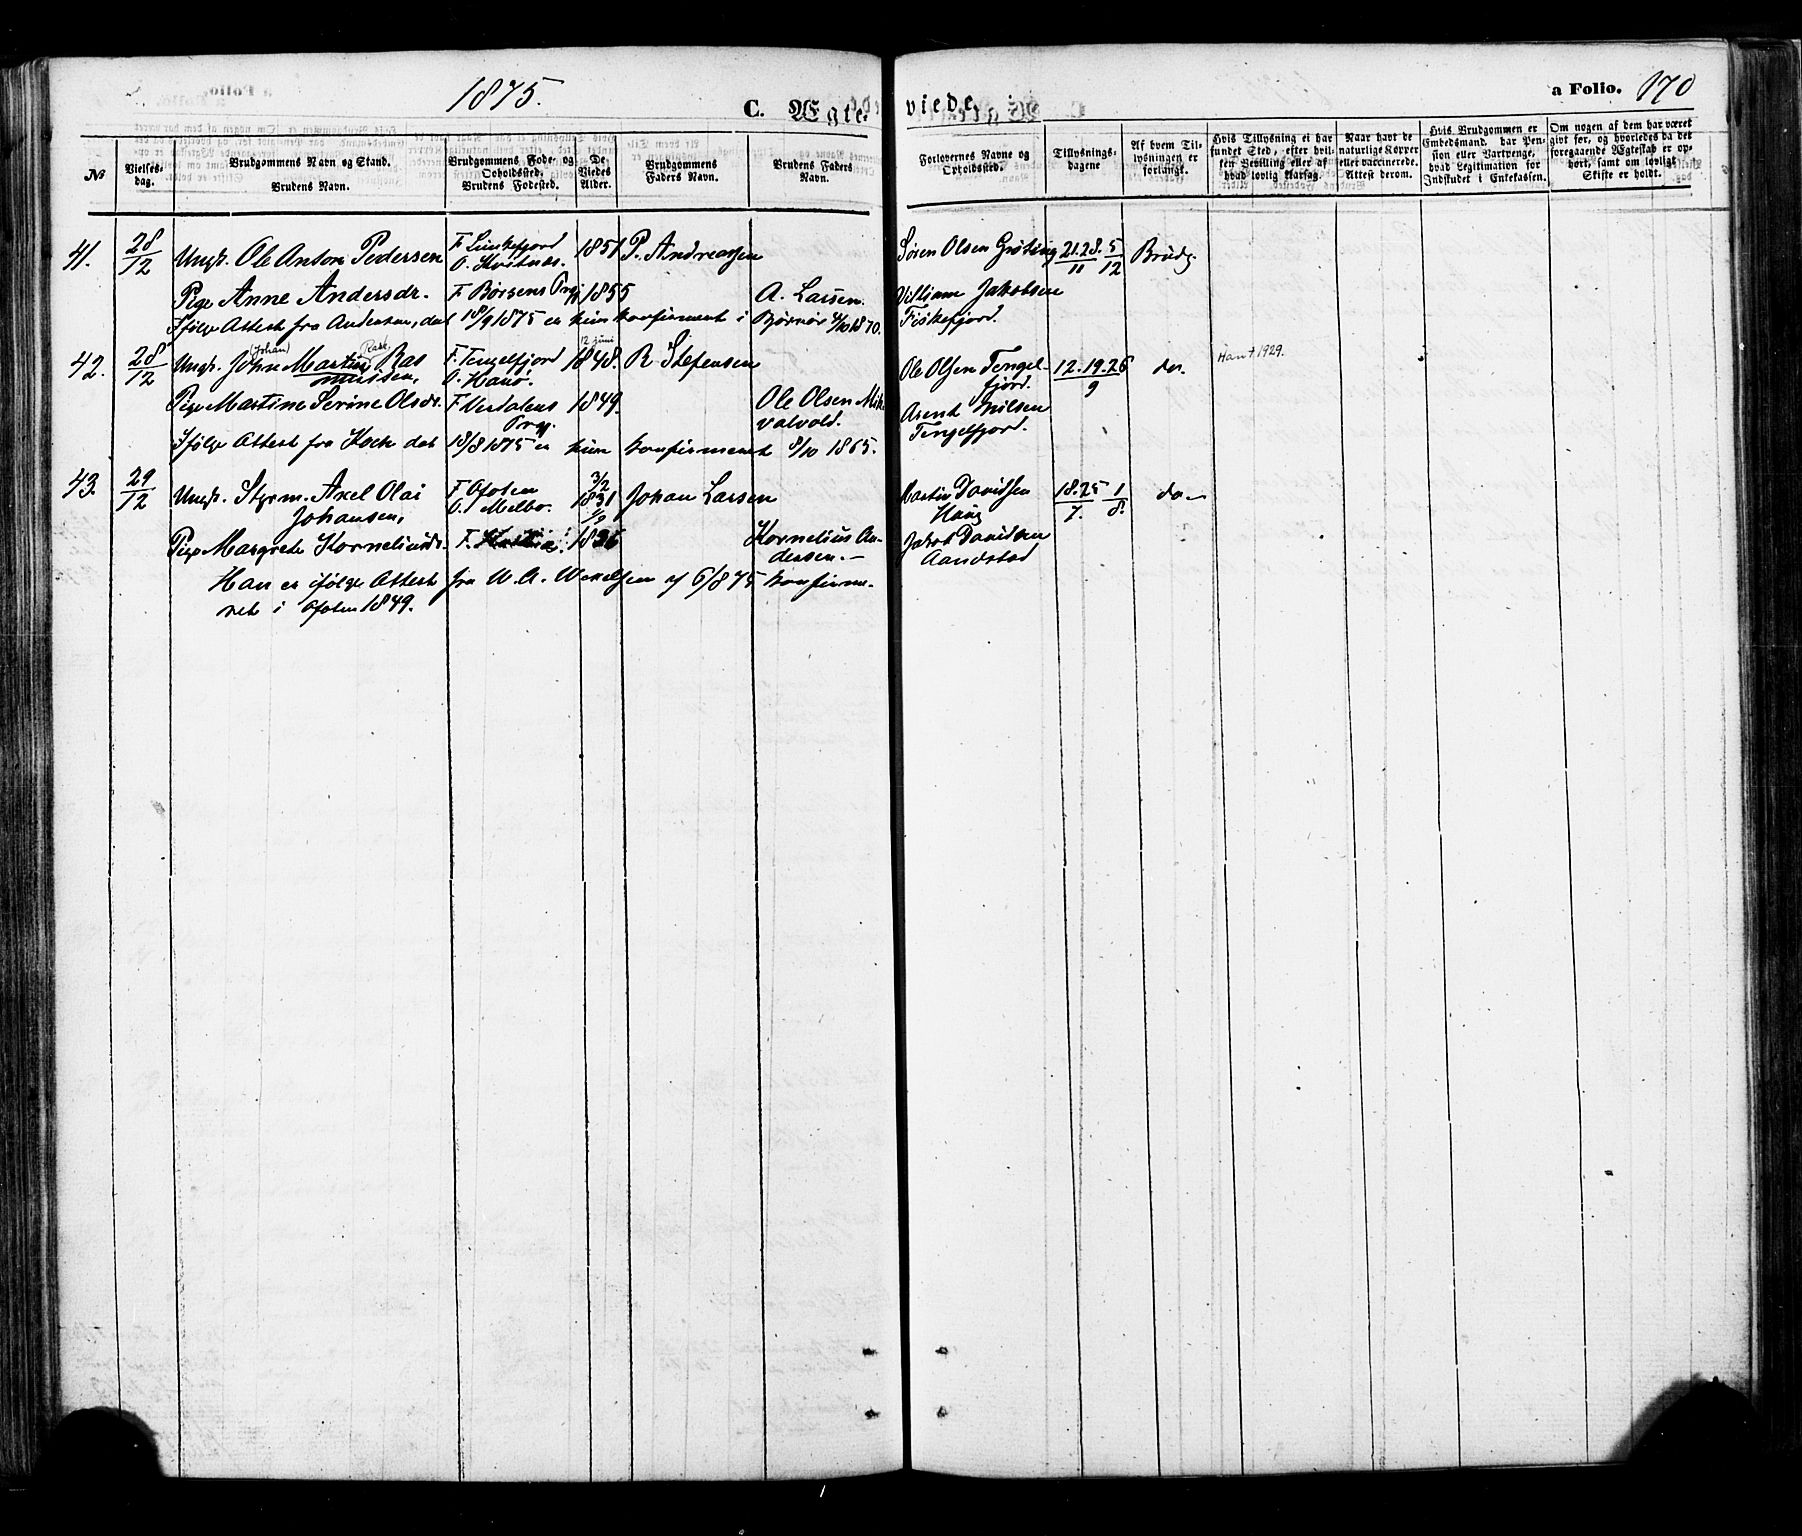 1875.
C. Ægteviede.
a Folio. 170
No
Vielses-dag.
Brudgommens Navn og Stand.
Brudens Navn.
Brudgommens Føde- og Opholdssted.
Brudens Fødested.
De Viedes Alder.
Brudgommens Faders Navn.
Brudens Faders Navn.
Forlovernes Navne og Opholdssted.
Tillysnings-dagene
Af hvem Tillysningen er forlangt.
Hvis Tillysning ei har fundet Sted, efter hvilken Bevilling eller af hvad lovlig Aarsag.
Naar havt de naturlige Kopper eller vaccinerede. Attest derom.
Hvis Brudgommen er Embedsmand, har Pension eller Vartpenge, hvad Legitimation for Indskudet i Enkekassen.
Om nogen af dem har været givt før, og hvorledes da det foregaaende Ægteskab er ophørt, samt om lovligt Skifte er holdt.
41. 28/12 Ungk. Ole Anton Pedersen F. O. 1851 P. Andreassen Søren Olsen Grøting 21. 28./11 5/12 Brudg.
Pige Anne Andersdr. F. Børsens Prgj. 1855 A. Larsen. Villiam Jakobsen
Ifølge Attest fra Andersen, dat 18/9 1875 er hun konfirmeret i Bjørnør 4/10 1870. Fiskefjord.
(Johan) Rask 12 juni
42. 28/12 Ungk. John Martin Rasmussen, F. Tengelfjord O. Hanø. 1848. R. Stefensen Ole Olsen Tengelfjord. 12. 19. 26/9 do. Han † 1929.
Pige Martine Serine Olsdr. F. Verdalens Prgj. 1849. Ole Olsen Mikvalvold. Arent Nilsen Tengelfjord.
Ifølge Attest fra Kock dat 18/8 1875 er hun konfirmeret 8/10 1865.
43. 29/12 Ungk. Styrm. Axel Olai Johansen, F. Ofoten O. Melbo. 3/2 1831 Johan Larsen Martin Davidsen Haug 18. 25/7. 1/8. do
Pige Margrete Korneliusdr. F. Kornelius Andersen. Jakob Davidsen Aandstad
Han er ifølge Attest fra W. A. Wexelsen af 6/8 75 konfirmeret i Ofoten 1849.